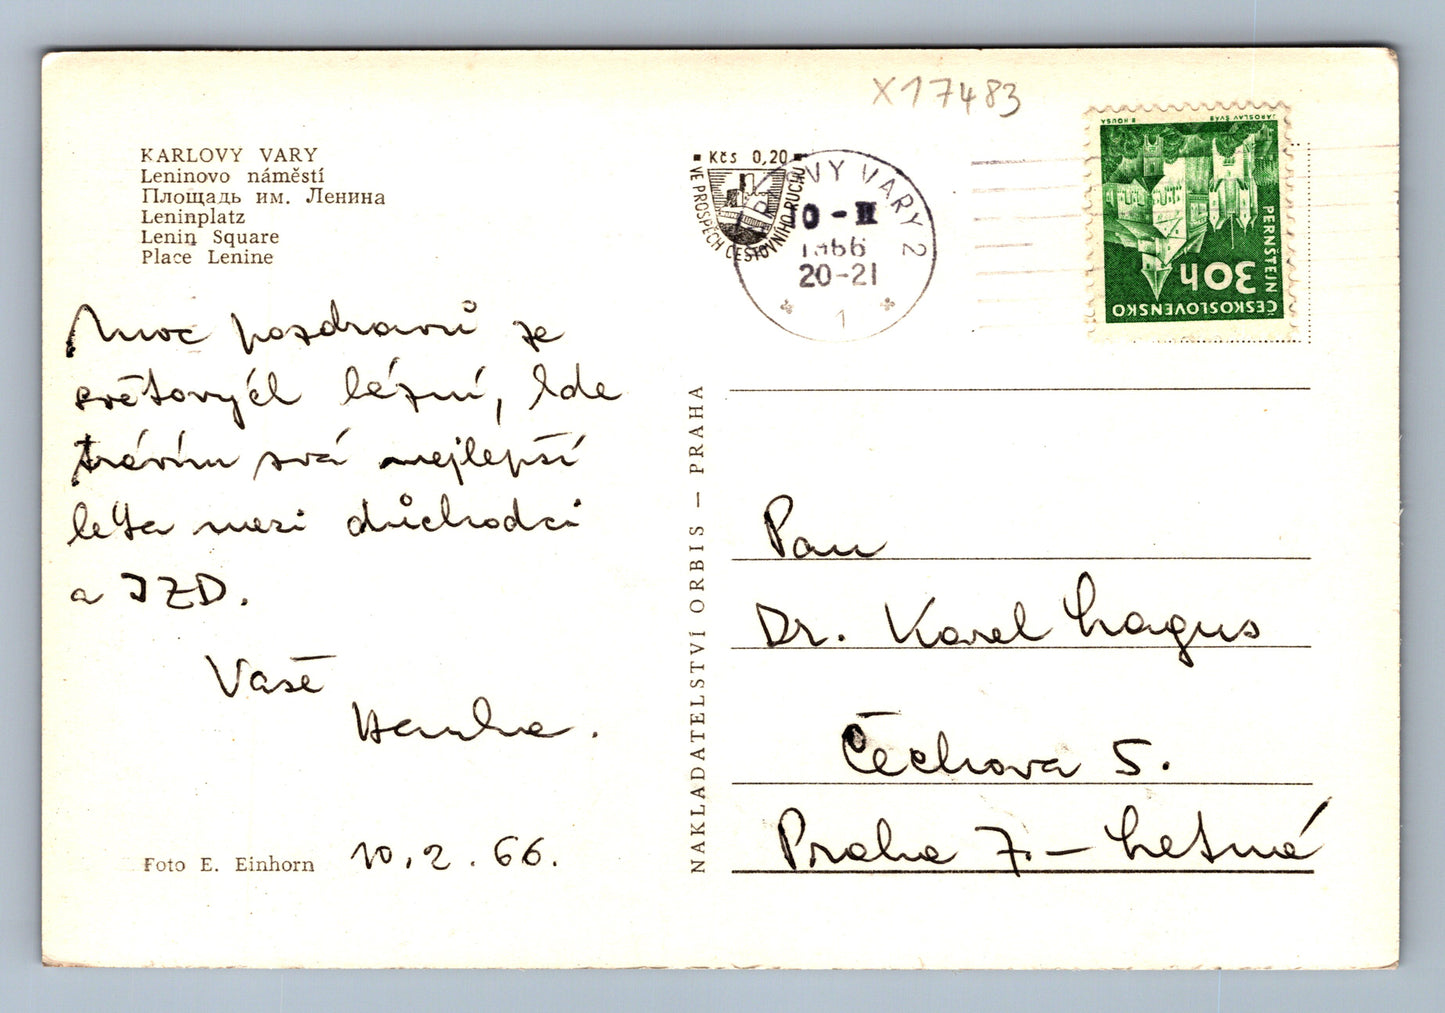 X17483
KARLOVY VARY
Leninovo náměstí
Площадь им. Ленина
Leninplatz
Lenin Square
Place Lenine
Kčs 0,20
VE PROSPĚCH CESTOVNÍHO RUCHU
VY VARY 2
0 - II
1966
20-21
1
JAROSLAV ŠVÁB
B HOUSA
PERNŠTEJN
30h
ČESKOSLOVENSKO
Moc pozdravů ze
světových lázní, kde
trávím svá nejlepší
léta mezi důchodci
a JZD.
Vaše
Hanka.
10.2.66.
Foto E. Einhorn
NAKLADATELSTVÍ ORBIS — PRAHA
Pan
Dr. Karel Lagus
Čechova 5.
Praha 7.— Letná